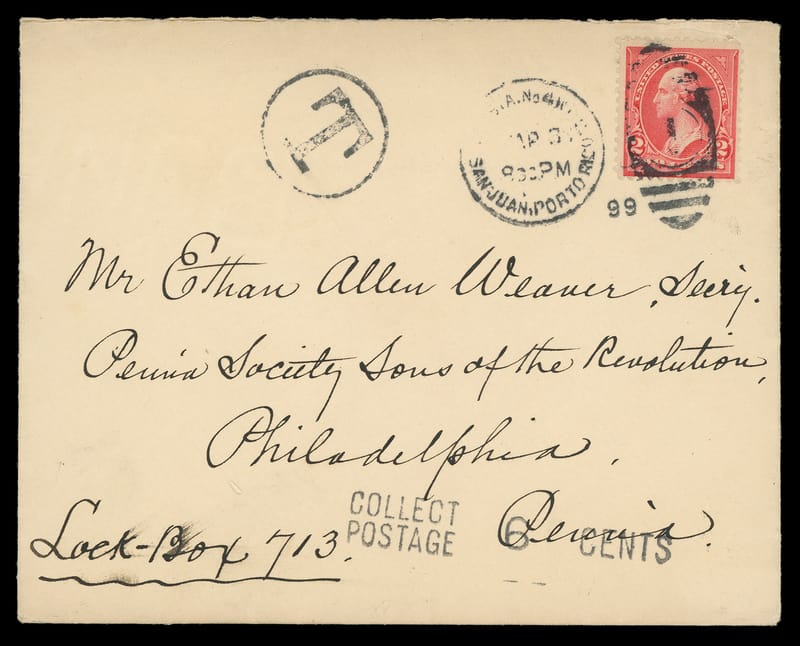 T
SAN JUAN, PORTO RICO
PM
99
UNITED STATES POSTAGE
2 2
Mr Ethan Allen Weaver, Secr'y.
Penn'a Society Sons of the Revolution,
Philadelphia,
Penn'a.
Lock-Box 713.
COLLECT
POSTAGE 6 CENTS